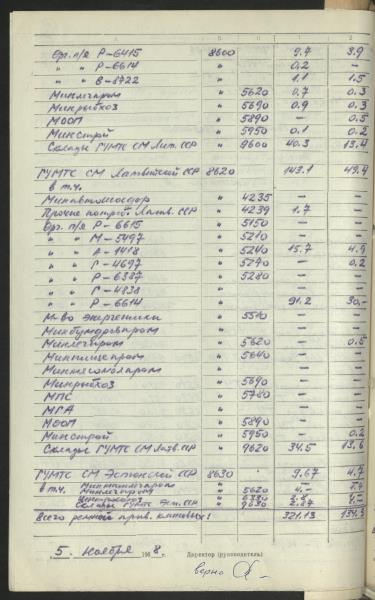 А Б В 1 2
Орг. п/я Р-6415 8600 9.7 3.9
" " Р-6614 " 0.2 —
" " В-8722 " 1.1 1.5
Минлегпром " 5620 0.7 0.3
Минрыбхоз " 5690 0.9 0.3
МООП " 5890 — 0.5
Минстрой " 5950 0.1 0.2
Склады ГУМТС СМ Лит. ССР " 9600 40.3 13.4
ГУМТС СМ Латвийской ССР 8620 143.1 49.4
в т.ч.
Минавтошосдор " 4235 — —
Прочие потреб. Латв. ССР " 4239 1.7 —
Орг. п/я Р-6615 " 5150 — —
" " М-5497 " 5210 — —
" " А-1418 " 5240 15.7 4.9
" " Г-4697 " 5270 — 0.2
" " Р-6387 " 5280 — —
" " Г-4831 " — —
" " Р-6614 " 91.2 30.—
М-во энергетики " 5510 — —
Минбумдревпром " — —
Минлегпром " 5620 — 0.5
Минпищепром " 5640 — —
Минмясомолпром " — —
Минрыбхоз " 5690 — —
МПС " 5780 — —
МГА " — —
МООП " 5890 — —
Минстрой " 5950 — 0.2
Склады ГУМТС СМ Латв. ССР " 9620 34.5 13.6
ГУМТС СМ Эстонской ССР 8630 9.67 4.7
в т.ч.
Минлегпром " 5620 4.—
Минрыбхоз
Склады ГУМТС Эст. ССР " 9630 2.87
Всего ремней прив. клиновых: 321.13 134.3
5. ноября 1968 г. Директор (руководитель)
верно